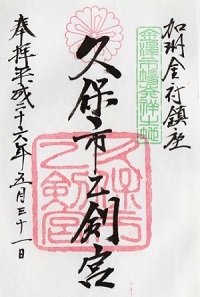 加州金沢鎮座
金澤市場発祥之地
久保市乙剣宮
久保市乙剣宮
奉拝平成二十六年五月三十一日